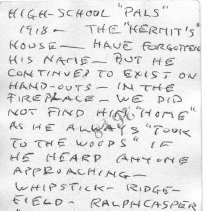 HIGH-SCHOOL "PALS"
1918 - THE "HERMIT'S"
HOUSE - HAVE FORGOTTEN
HIS NAME - BUT HE
CONTINUED TO EXIST ON
HAND-OUTS - IN THE
FIREPLACE - WE DID
NOT FIND HIM "HOME"
AS HE ALWAYS "TOOK
TO THE WOODS" IF
HE HEARD ANYONE
APPROACHING -
WHIPSTICK - RIDGE-
FIELD - RALPH CASPER